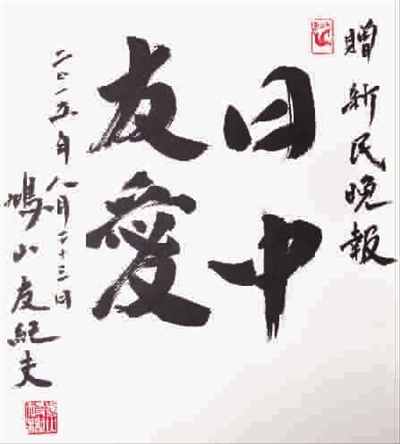 贈新民晚報
日中
友愛
二〇一五年八月二十三日
鳩山友紀夫